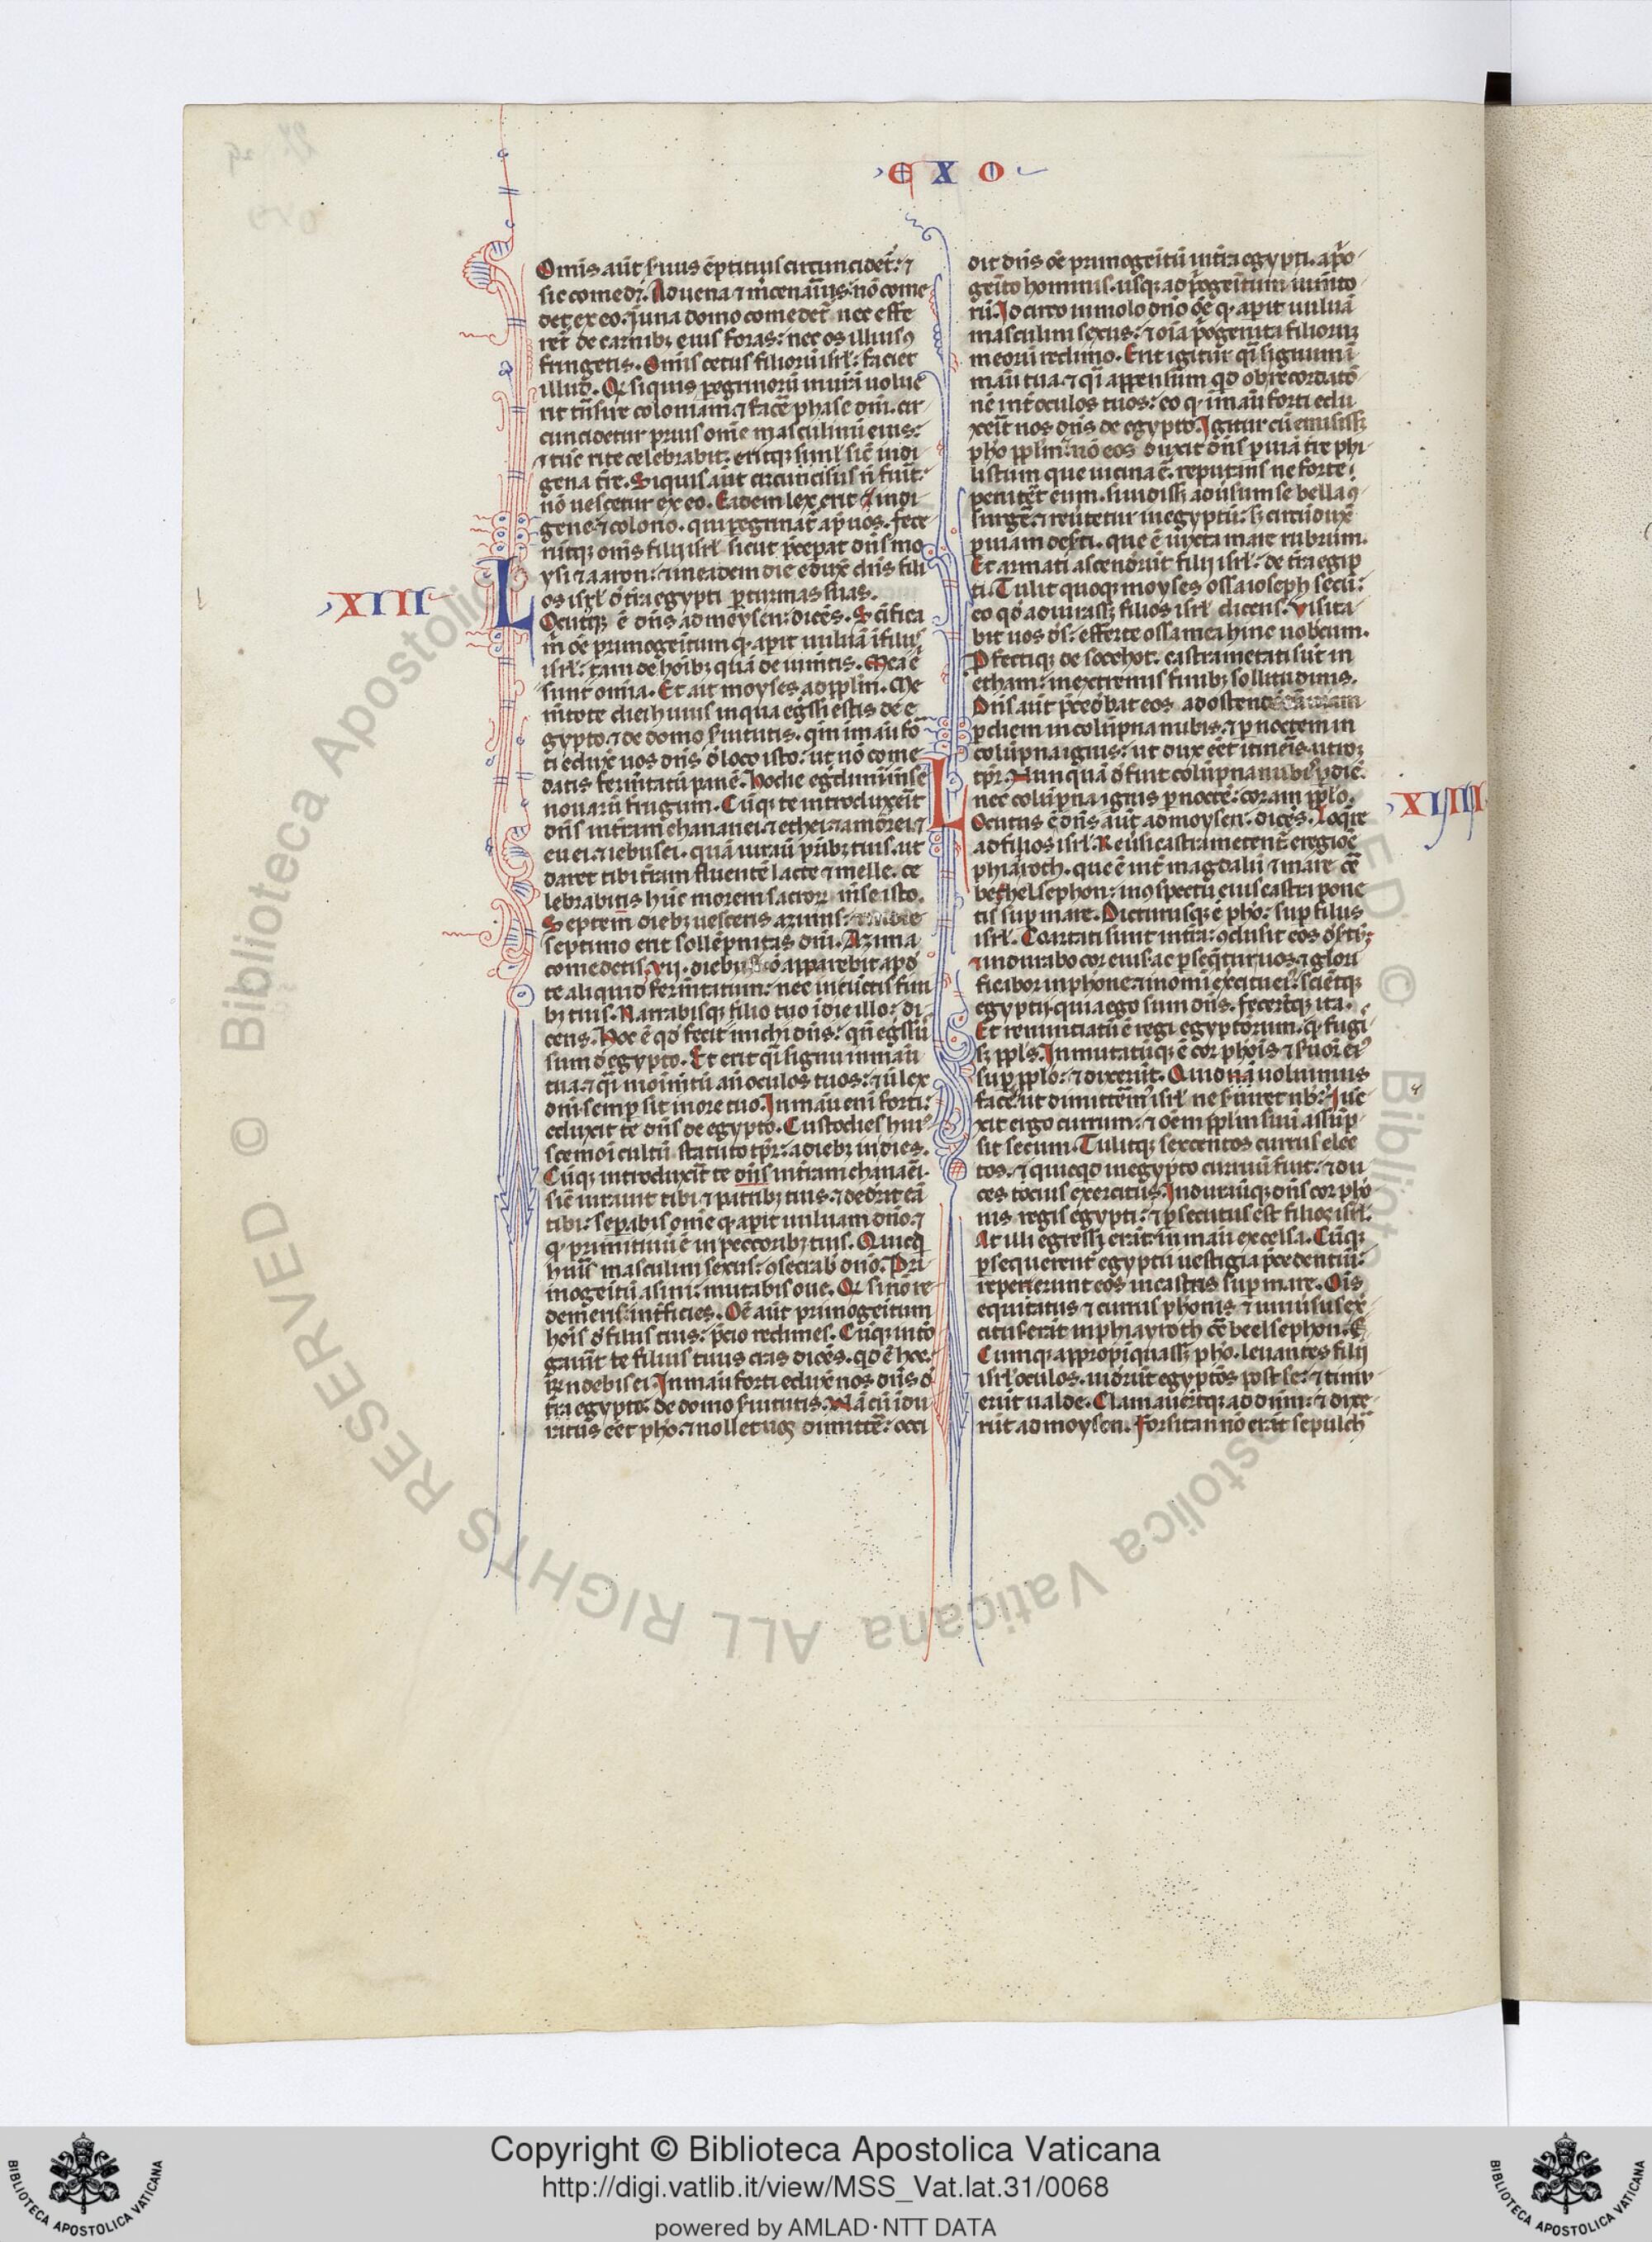 EXO
Omīs aūt s̄uus ēptitius circuncidet̄: ⁊
sic comedꝫ. Aduena ⁊ m̄cenarius: nō come
det ex eo. ī una domo comedet̄ nec effe
ret̄ de carnibꝫ eius foras: nec os illius ꝯ
fringetis. Om̄is cetus filiorū isrl̄ faciet
illud. Qꝫ si quis pegrinorū in uirā uolue
rit trāsire coloniam ⁊ facē̄ phase dn̄i. cir
cuncidetur prius om̄e masculinū eius:
⁊ tūc rite celebrabit: eritqꝫ siml̄ sic̄ indi
gena tr̄e. Si quis aūt circūcisus n̄ fūit:
nō uescetur ex eo. Eadem lex erit indi
gene ⁊ colono. qui pegrinat̄ apᵈ uos. fece
rūtqꝫ om̄is filii isrl̄ sicut p̄cepat dn̄s mo
ysi ⁊ aaron: ⁊ in eadem die eduxit dn̄s fili
os isrl̄ d̄ tr̄a egypti p turmas suas.
XIII
Locutqꝫ ē dn̄s ad moysen: dicēs. Sc̄ifica
m̄ oē primogeitum qᵈ apit uuluā ī filiis
isrl̄: tam de hoībꝫ quā de iumtis. Mea ē
sunt omīa. Et ait moyses ad ppl̄m. Me
m̄tote diei huius in qua eḡssi estis de e
gypto. ⁊ de domo s̄uitutis. qm̄ in māu fo
ti eduxit uos dn̄s d̄ loco isto: ut nō come
datis ferm̄tatū panē. Hodie eḡdimini m̄se
nouarū frugum. Cūqꝫ te introduxerit
dn̄s in tr̄am chananei. ⁊ ethei. ⁊ amorrei. ⁊
euei. ⁊ iebusei. quā iurauit pr̄ibꝫ tuis. ut
daret tibi tr̄am fluentē lacte ⁊ melle. ce
lebrabitis hūc morem sacror̄ m̄se isto.
Septem diebꝫ uesceris azimis: ⁊ in die
septimo erit sollēpnitas dn̄i. Azima
comedetis. vii. diebus nō apparebit apᵈ
te aliquid ferm̄tatum: nec in cūctis fini
bꝫ tuis. Narrabisqꝫ filio tuo ī die illo: di
cens. Hoc ē qᵈ fecit michi dn̄s: qn̄ eḡssus
sum d̄ egypto. Et erit qī signū in māu
tua. ⁊ qī monim̄tū an̄ oculos tuos: ⁊ ut lex
dn̄i semp sit in ore tuo. In māu eni forti:
eduxit te dn̄s de egypto. Custodies huiꝰ
scemōi cultū statuto tp̄r: a diebꝫ in dies.
Cūqꝫ introduxit̄ te dn̄s in tr̄am chanaēi.
sic̄ iurauit tibi ⁊ patribꝫ tuis. ⁊ dederit eā
tibi: sepabis om̄e qᵈ apit uuluam dn̄o. ⁊
qᵈ primitiuū ē in peccoribꝫ tuis. Quicqᵈ
hūit̄ masculini sexus: ꝯsecrab̄ dn̄o. Pri
mogeitū asini: mutabis oue. Qꝫ si nō re
demeris: int̄ficies. Oē aūt primogeitum
hoīs d̄ filiis tuis: p̄cio redimes. Cūqꝫ int̄ro
gauit̄ te filius tuus cras dicēs. qᵈ ē hoc.
rn̄debis ei. In māu forti eduxit nos dn̄s d̄
tr̄a egypti. de domo s̄uitutis. Nā cū idu
ratus eēt pho. ⁊ nollet nos dimittē̄: occi
dit dn̄s oē primogeitū in tr̄a egypti. a pⁱo
geīto hominis. usqꝫ ad pⁱogeitum iumto
rū. Idcirco immolo dn̄o oē qᵈ apit uuluā
masculini sexus: ⁊ oīa pⁱogenita filiorū
meorū redimo. Erit igitur qī signum ī
māu tua. ⁊ qī appensum qᵈ ob recordatō
nē int̄ oculos tuos: eo qᵈ in māu forti edu
xerit nos dn̄s de egypto. Igitur cū emisissꝫ
pho ppl̄m: nō eos duxit dn̄s p uiā tr̄e phi
listim que uicina ē. reputans ne forte
penitēt eum. si uidissꝫ adusum se bella ꝯ
surgē̄. ⁊ reūtetur in egyptū: sꝫ circūduxit
p uiam desti. que ē iuxta mare rubrum.
Et armati ascenderūt filii isrl̄: de tr̄a egip
ti. Tulit quoqꝫ moyses ossa ioseph secū:
eo qᵈ adiurassꝫ filios isrl̄ dicens. Visita
bit uos dꝰs: efferte ossa mea hinc uobcum.
Pfectiqꝫ de socchot: castrametati sūt in
etham: in extremis finibꝫ sollitudinis.
Dn̄s aūt p̄cedebat eos ad ostendēdā uiam
p diem in colūpna nubis. ⁊ p noctem in
colūpna ignis: ut dux eēt itineris utroqꝫ
tp̄r. Nunquā defuit colūpna nubis p diē.
nec colūpna ignis p noctē: coram pplō.
XIIII
Locutus ē dn̄s aūt ad moysen: dicēs. Loqūe
ad filios isrl̄. Reūsi castrametent̄ e regiōe
phiairoth. que ē int̄ magdalū ⁊ mare cō
beelsephon: in ꝯspectu eius castra pone
tis sup mare. Dicturusqꝫ ē pho: sup filiis
isrl̄. Coartati sunt in tr̄a: ꝯclusit eos destū:
⁊ indurabo cor eius: ac pseqtur uos. ⁊ glori
ficabor in phone. ⁊ in om̄i excitu eiꝰ: scientqꝫ
egyptii quia ego sum dn̄s. fecertqꝫ ita.
Et renunciatū ē regi egyptiorum. qᵈ fugi
sꝫ ppl̄s. Inmutatūqꝫ ē cor phois ⁊ s̄uor̄ eiꝰ
sup pplō: ⁊ dixerūt. Quid nā uoluimus
facē̄. ut dimittēmꝰ isrl̄ ne s̄uiret nobꝫ. Iuc̄
xit ergo currum: ⁊ oēm ppl̄m suū assūp
sit secum. Tulitqꝫ sexcentos currus elec
tos. ⁊ quicqᵈ in egypto curruū fuit: ⁊ du
ces tocius exercitus. Indurauitqꝫ dn̄s cor pho
nis regis egypti: ⁊ psecutus est filios isrl̄.
At illi egressi erāt in māu excelsa. Cūqꝫ
psequerent̄ egyptii uestigia p̄cedentiū:
reperierunt eos in castris sup mare. Oīs
equitatus ⁊ currus phonis ⁊ uniūsus ex
citus erāt in phiayroth cō beelsephon.
Cumqꝫ appropiquassꝫ pho. leuantes filii
isrl̄ oculos. uiderūt egyptios post se: ⁊ timu
erūt ualde. Clamauerūtqꝫ ad dn̄m: ⁊ dixe
rūt ad moysen. Forsitan nō erāt sepulch̄
Copyright © Biblioteca Apostolica Vaticana
http://digi.vatlib.it/view/MSS_Vat.lat.31/0068
powered by AMLAD·NTT DATA
BIBLIOTECA APOSTOLICA VATICANA
BIBLIOTECA APOSTOLICA VATICANA
© Biblioteca Apostolica Vaticana ALL RIGHTS RESERVED